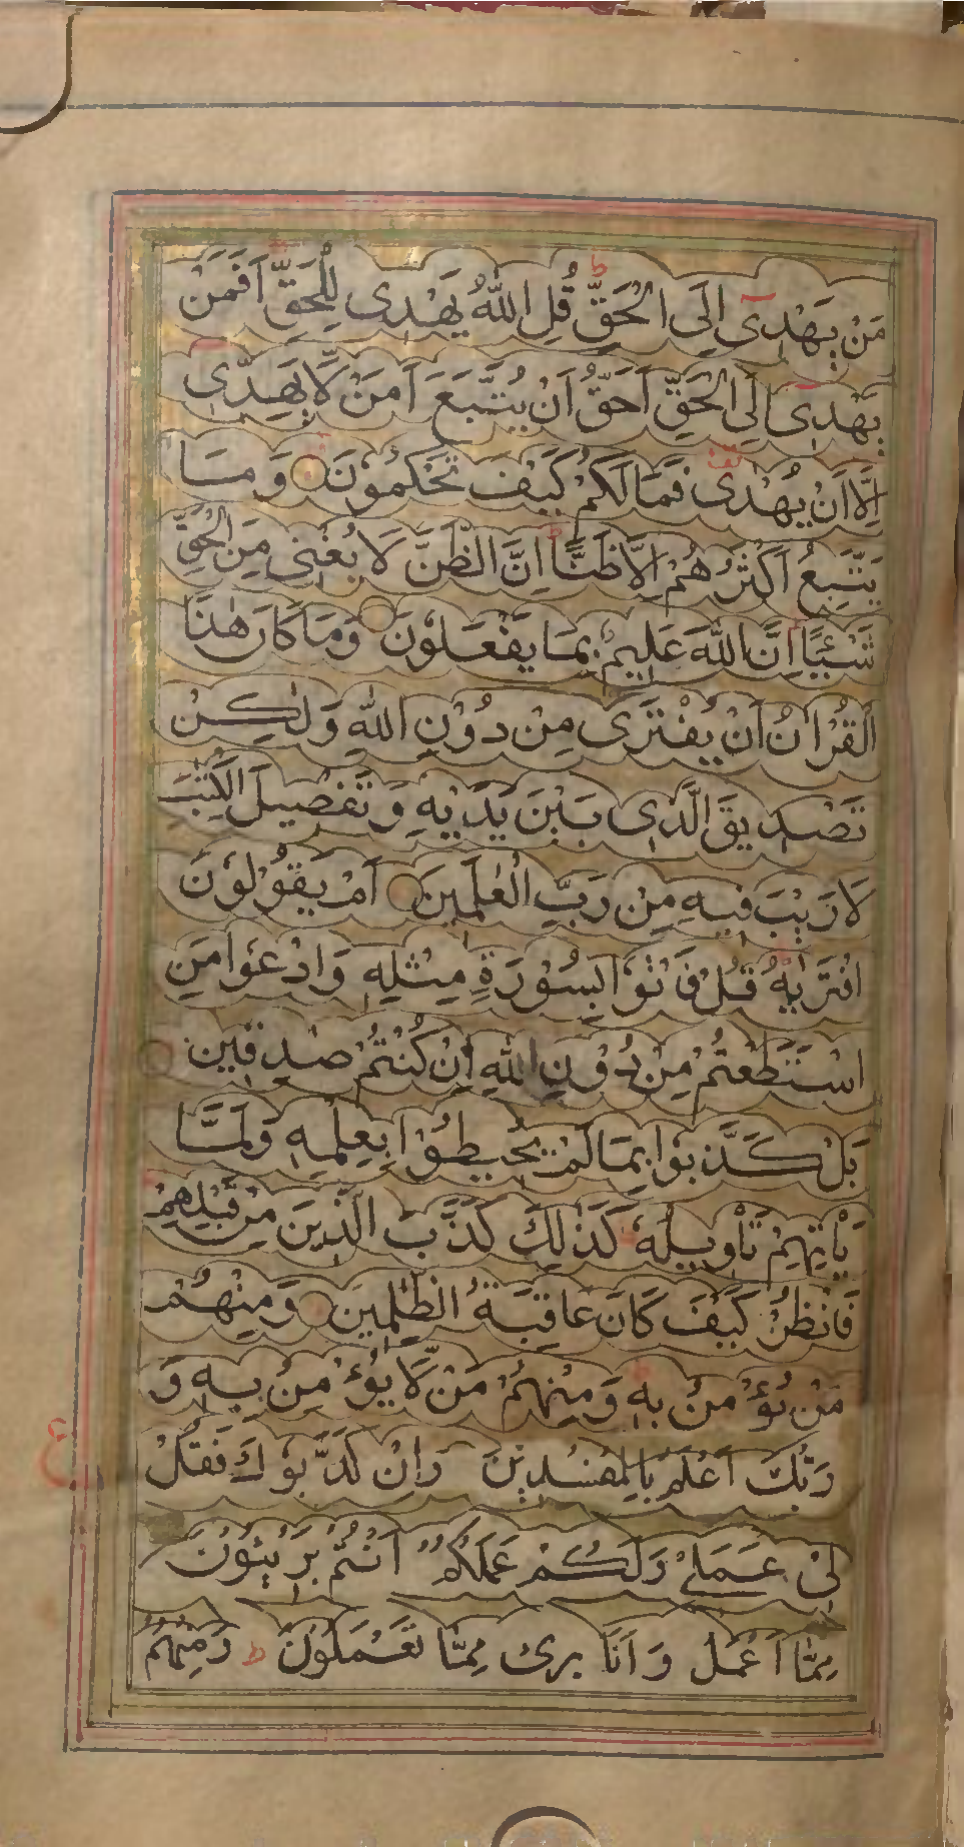 مَنْ يَهْدِىٓ اِلَى الْحَقِّ قُلِ اللّٰهُ يَهْدِى لِلْحَقِّ اَفَمَنْ
يَهْدِىٓ اِلَى الْحَقِّ اَحَقُّ اَنْ يُتَّبَعَ اَمَنْ لَّا يَهِدِّىٓ
اِلَّا اَنْ يُهْدٰى فَمَا لَكُمْ كَيْفَ تَحْكُمُوْنَ وَمَا
يَتَّبِعُ اَكْثَرُهُمْ اِلَّا ظَنًّا اِنَّ الظَّنَّ لَا يُغْنِى مِنَ الْحَقِّ
شَيْئًا اِنَّ اللّٰهَ عَلِيمٌ بِمَا يَفْعَلُوْنَ وَمَا كَانَ هٰذَا
الْقُرْاٰنُ اَنْ يُفْتَرٰى مِنْ دُوْنِ اللّٰهِ وَلٰكِنْ
تَصْدِيقَ الَّذِى بَيْنَ يَدَيْهِ وَتَفْصِيلَ الْكِتٰبِ
لَا رَيْبَ فِيهِ مِنْ رَبِّ الْعٰلَمِينَ اَمْ يَقُوْلُوْنَ
افْتَرٰيهُ قُلْ فَاْتُوْا بِسُوْرَةٍ مِثْلِهٖ وَادْعُوْا مَنِ
اسْتَطَعْتُمْ مِنْ دُوْنِ اللّٰهِ اِنْ كُنْتُمْ صٰدِقِينَ
بَلْ كَذَّبُوْا بِمَا لَمْ يُحِيطُوْا بِعِلْمِهٖ وَلَمَّا
يَاْتِهِمْ تَاْوِيلُهٗ كَذٰلِكَ كَذَّبَ الَّذِينَ مِنْ قَبْلِهِمْ
فَانْظُرْ كَيْفَ كَانَ عَاقِبَةُ الظّٰلِمِينَ وَمِنْهُمْ
مَنْ يُؤْمِنُ بِهٖ وَمِنْهُمْ مَنْ لَّا يُؤْمِنُ بِهٖ وَ
رَبُّكَ اَعْلَمُ بِالْمُفْسِدِينَ وَاِنْ كَذَّبُوْكَ فَقُلْ
لِىْ عَمَلِىْ وَلَكُمْ عَمَلُكُمْ اَنْتُمْ بَرِيْئُوْنَ
مِمَّا اَعْمَلُ وَاَنَا بَرِىٓ مِمَّا تَعْمَلُوْنَ ط وَمِنْهُمْ